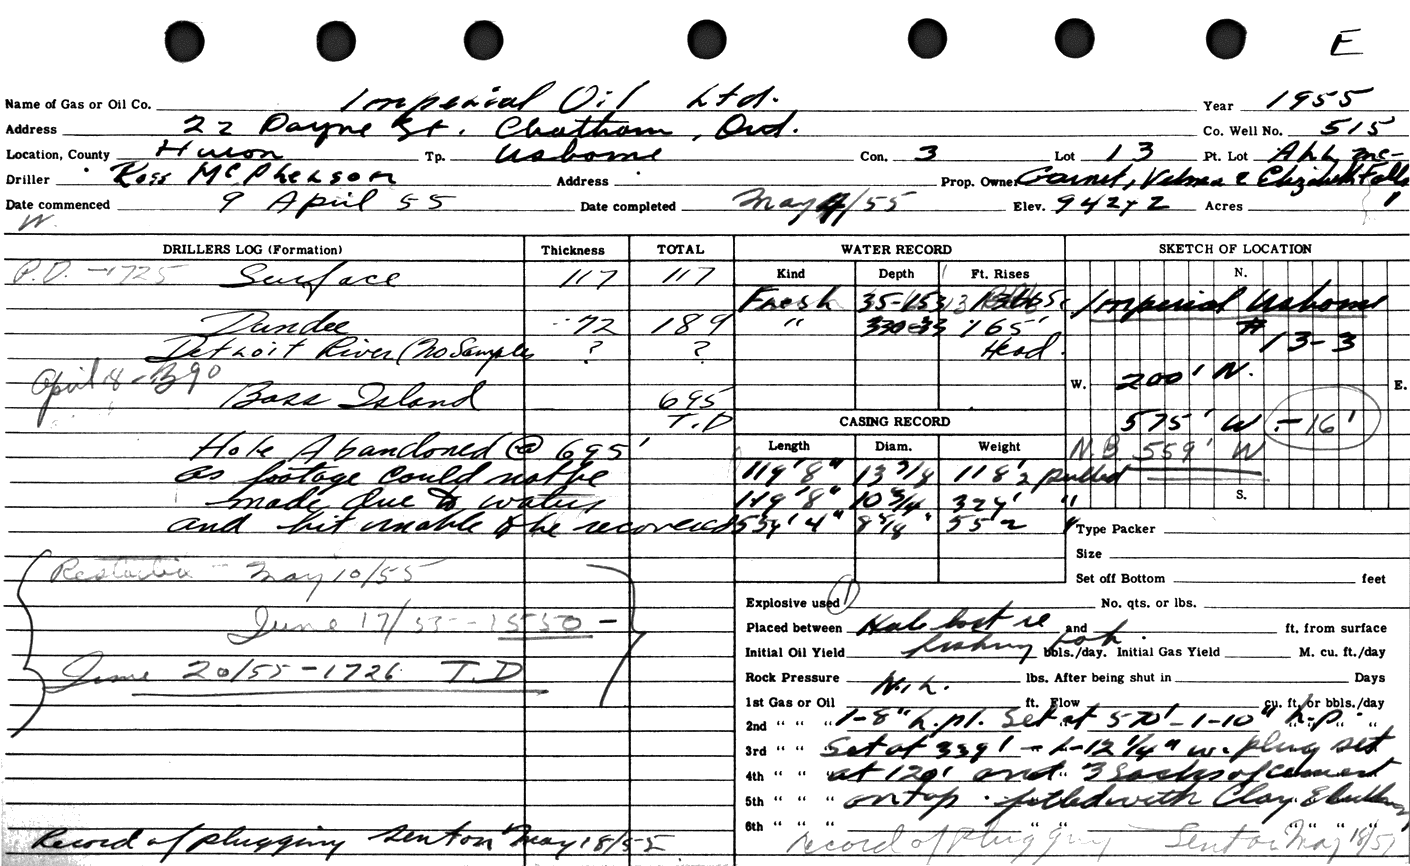 E
Name of Gas or Oil Co. Imperial Oil Ltd. Year 1955
Address 22 Payne St. Chatham, Ont. Co. Well No. 515
Location, County Huron Tp. Usborne Con. 3 Lot 13 Pt. Lot
Driller Ross McPherson Address Prop. Owner Garnet, Velma & Elizabeth Falls
Date commenced 9 April 55 Date completed May /55 Elev. 942 Acres
W.
DRILLERS LOG (Formation) Thickness TOTAL WATER RECORD SKETCH OF LOCATION
P.D. -1725 Surface 117 117 Kind Depth Ft. Rises N.
Fresh 35-153 Imperial Usborne
Dundee 72 189 " 165' # 13-3
Detroit River (No Samples ? ? Head.
April 8 - B90 W. 200' N. E.
Bass Island 695
T.D CASING RECORD 575' W -16'
Hole Abandoned @ 695' Length Diam. Weight N.B. 559' W
as footage could not be 119'8" 13 3/8 pulled
made due to water 119'8" 10 3/4 329' " S.
and bit unable to be recovered 559'4" 8 5/8" 552 " Type Packer
Size
Restarted - May 10/55 Set off Bottom feet
Explosive used No. qts. or lbs.
June 17/55 - 1550 - Placed between Hole lost re and ft. from surface
Initial Oil Yield fishing job. bbls./day. Initial Gas Yield M. cu. ft./day
June 20/55 - 1726 T.D Rock Pressure Nil. lbs. After being shut in Days
1st Gas or Oil ft. Flow cu. ft. or bbls./day
2nd " " " 1-8" h.pl. Set at 570' - 1-10" h.p.
3rd " " Set at 339' - 1-12 1/4" w. plug set
4th " " at 120' and 3 Sacks of cement
5th " " " on top. filled with Clay &
6th " " "
Record of plugging sent on May 18/55 Record of plugging Sent on May 18/55